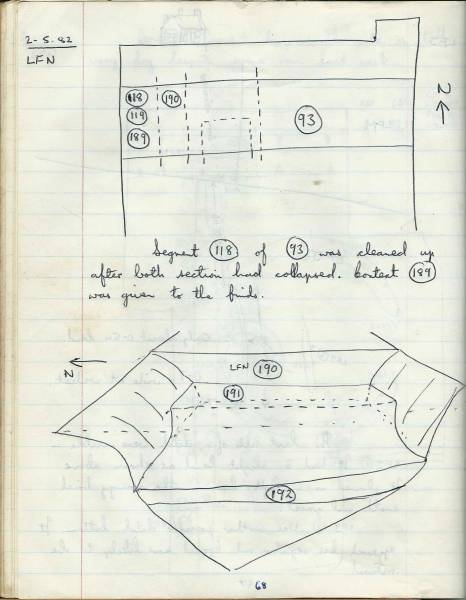 2-5-82
LFN
118 190
119
189
93
N
Segment 118 of 93 was cleaned up
after both section had collapsed. Context 189
was given to the finds.
N
LFN 190
191
192
68